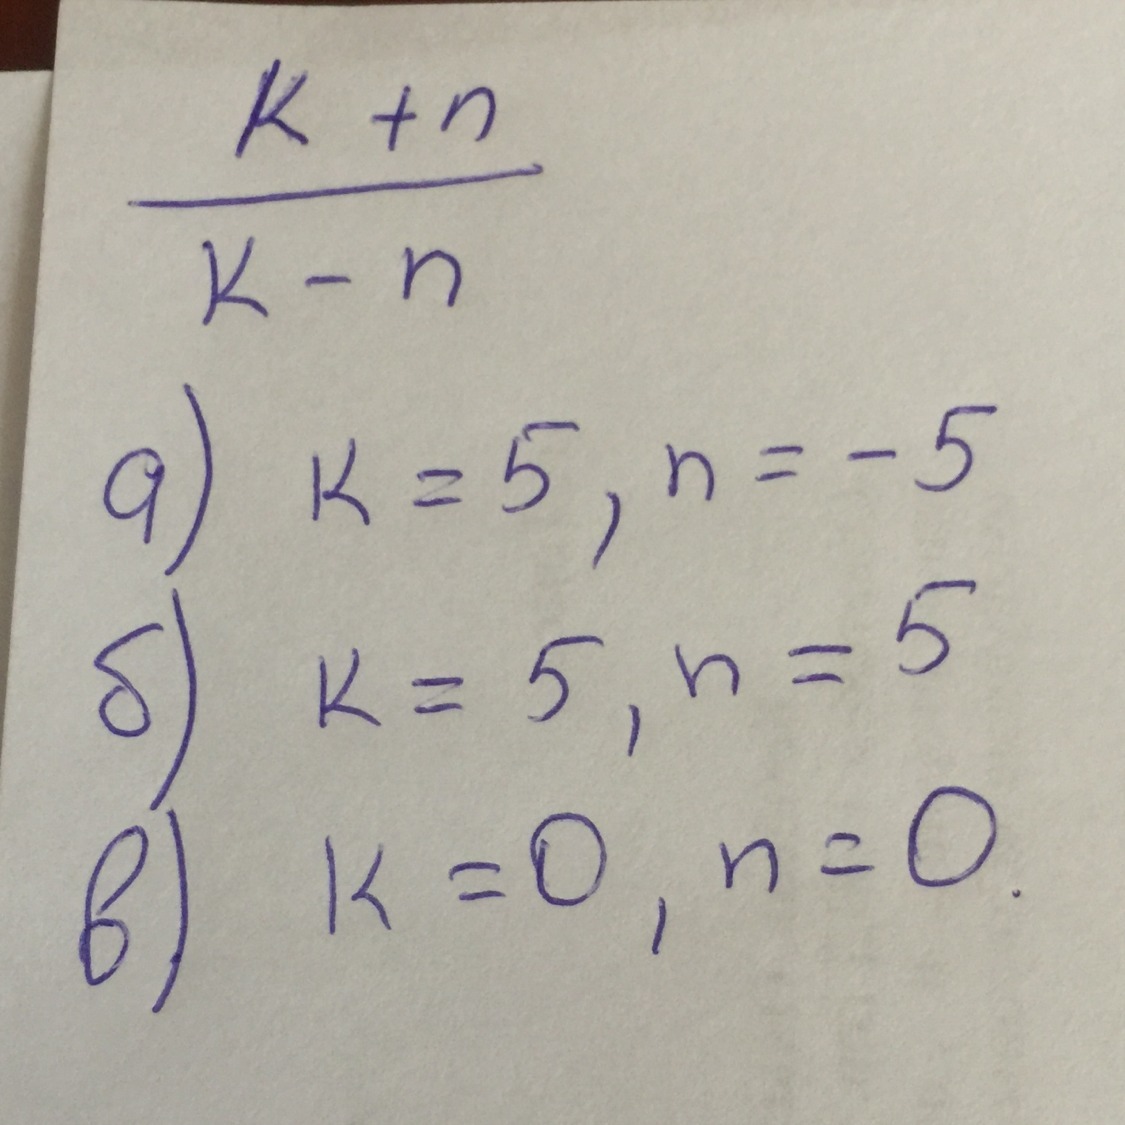 k + n
k - n
а) k = 5, n = - 5
б) k = 5, n = 5
в) k = 0, n = 0.